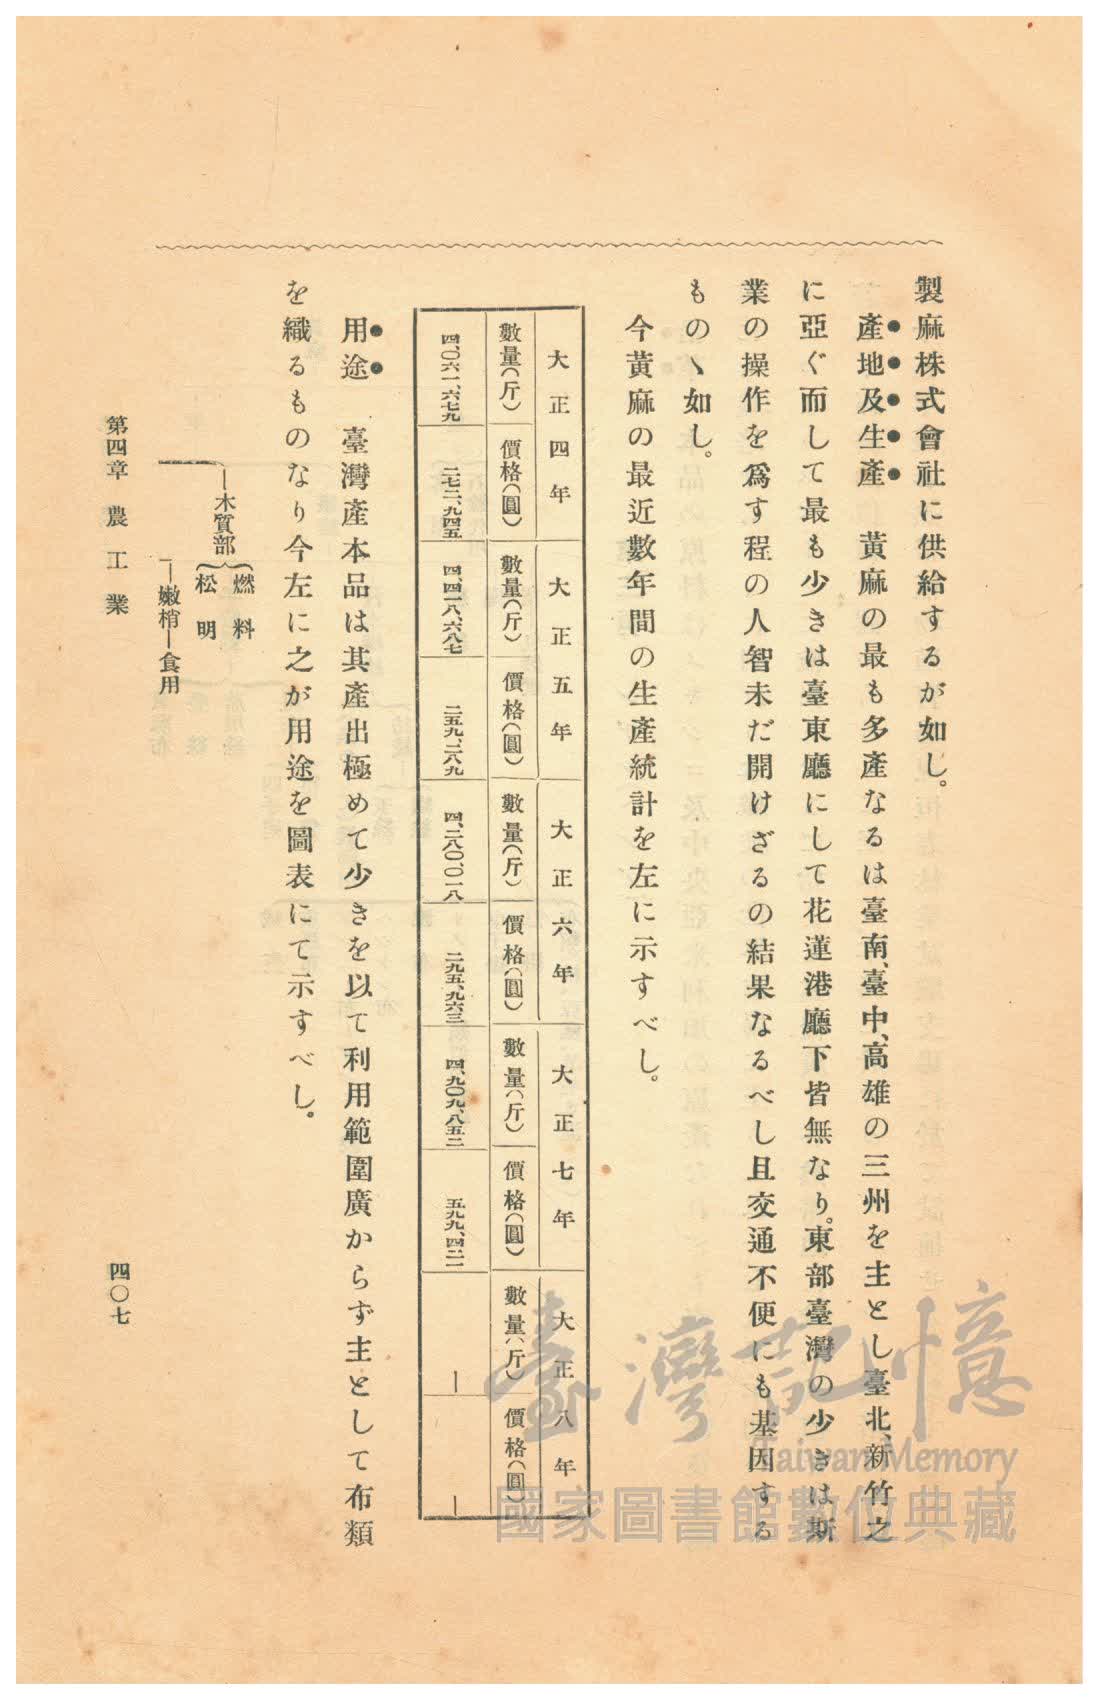 製麻株式會社に供給するが如し。
產地及生產　黃麻の最も多產なるは臺南、臺中、高雄の三州を主とし臺北、新竹之
に亞ぐ而して最も少きは臺東廳にして花蓮港廳下皆無なり。東部臺灣の少きは斯
業の操作を爲す程の人智未だ開けざるの結果なるべし且交通不便にも基因する
ものゝ如し。
今黃麻の最近數年間の生產統計を左に示すべし。
大正四年　大正五年　大正六年　大正七年　大正八年
數量(斤)　價格(圓)　數量(斤)　價格(圓)　數量(斤)　價格(圓)　數量(斤)　價格(圓)　數量(斤)　價格(圓)
四、〇六一、六七九　二七二、九四五　四、四一八、六八七　二五九、二八九　四、二八〇、〇一八　二九五、九六三　四、九〇九、八五二　五九九、四二一　―　―
用途　臺灣產本品は其產出極めて少きを以て利用範圍廣からず主として布類
を織るものなり今左に之が用途を圖表にて示すべし。
木質部
燃料
松明
嫩梢―食用
第四章　農工業
四〇七
臺灣記憶
Taiwan Memory
國家圖書館數位典藏